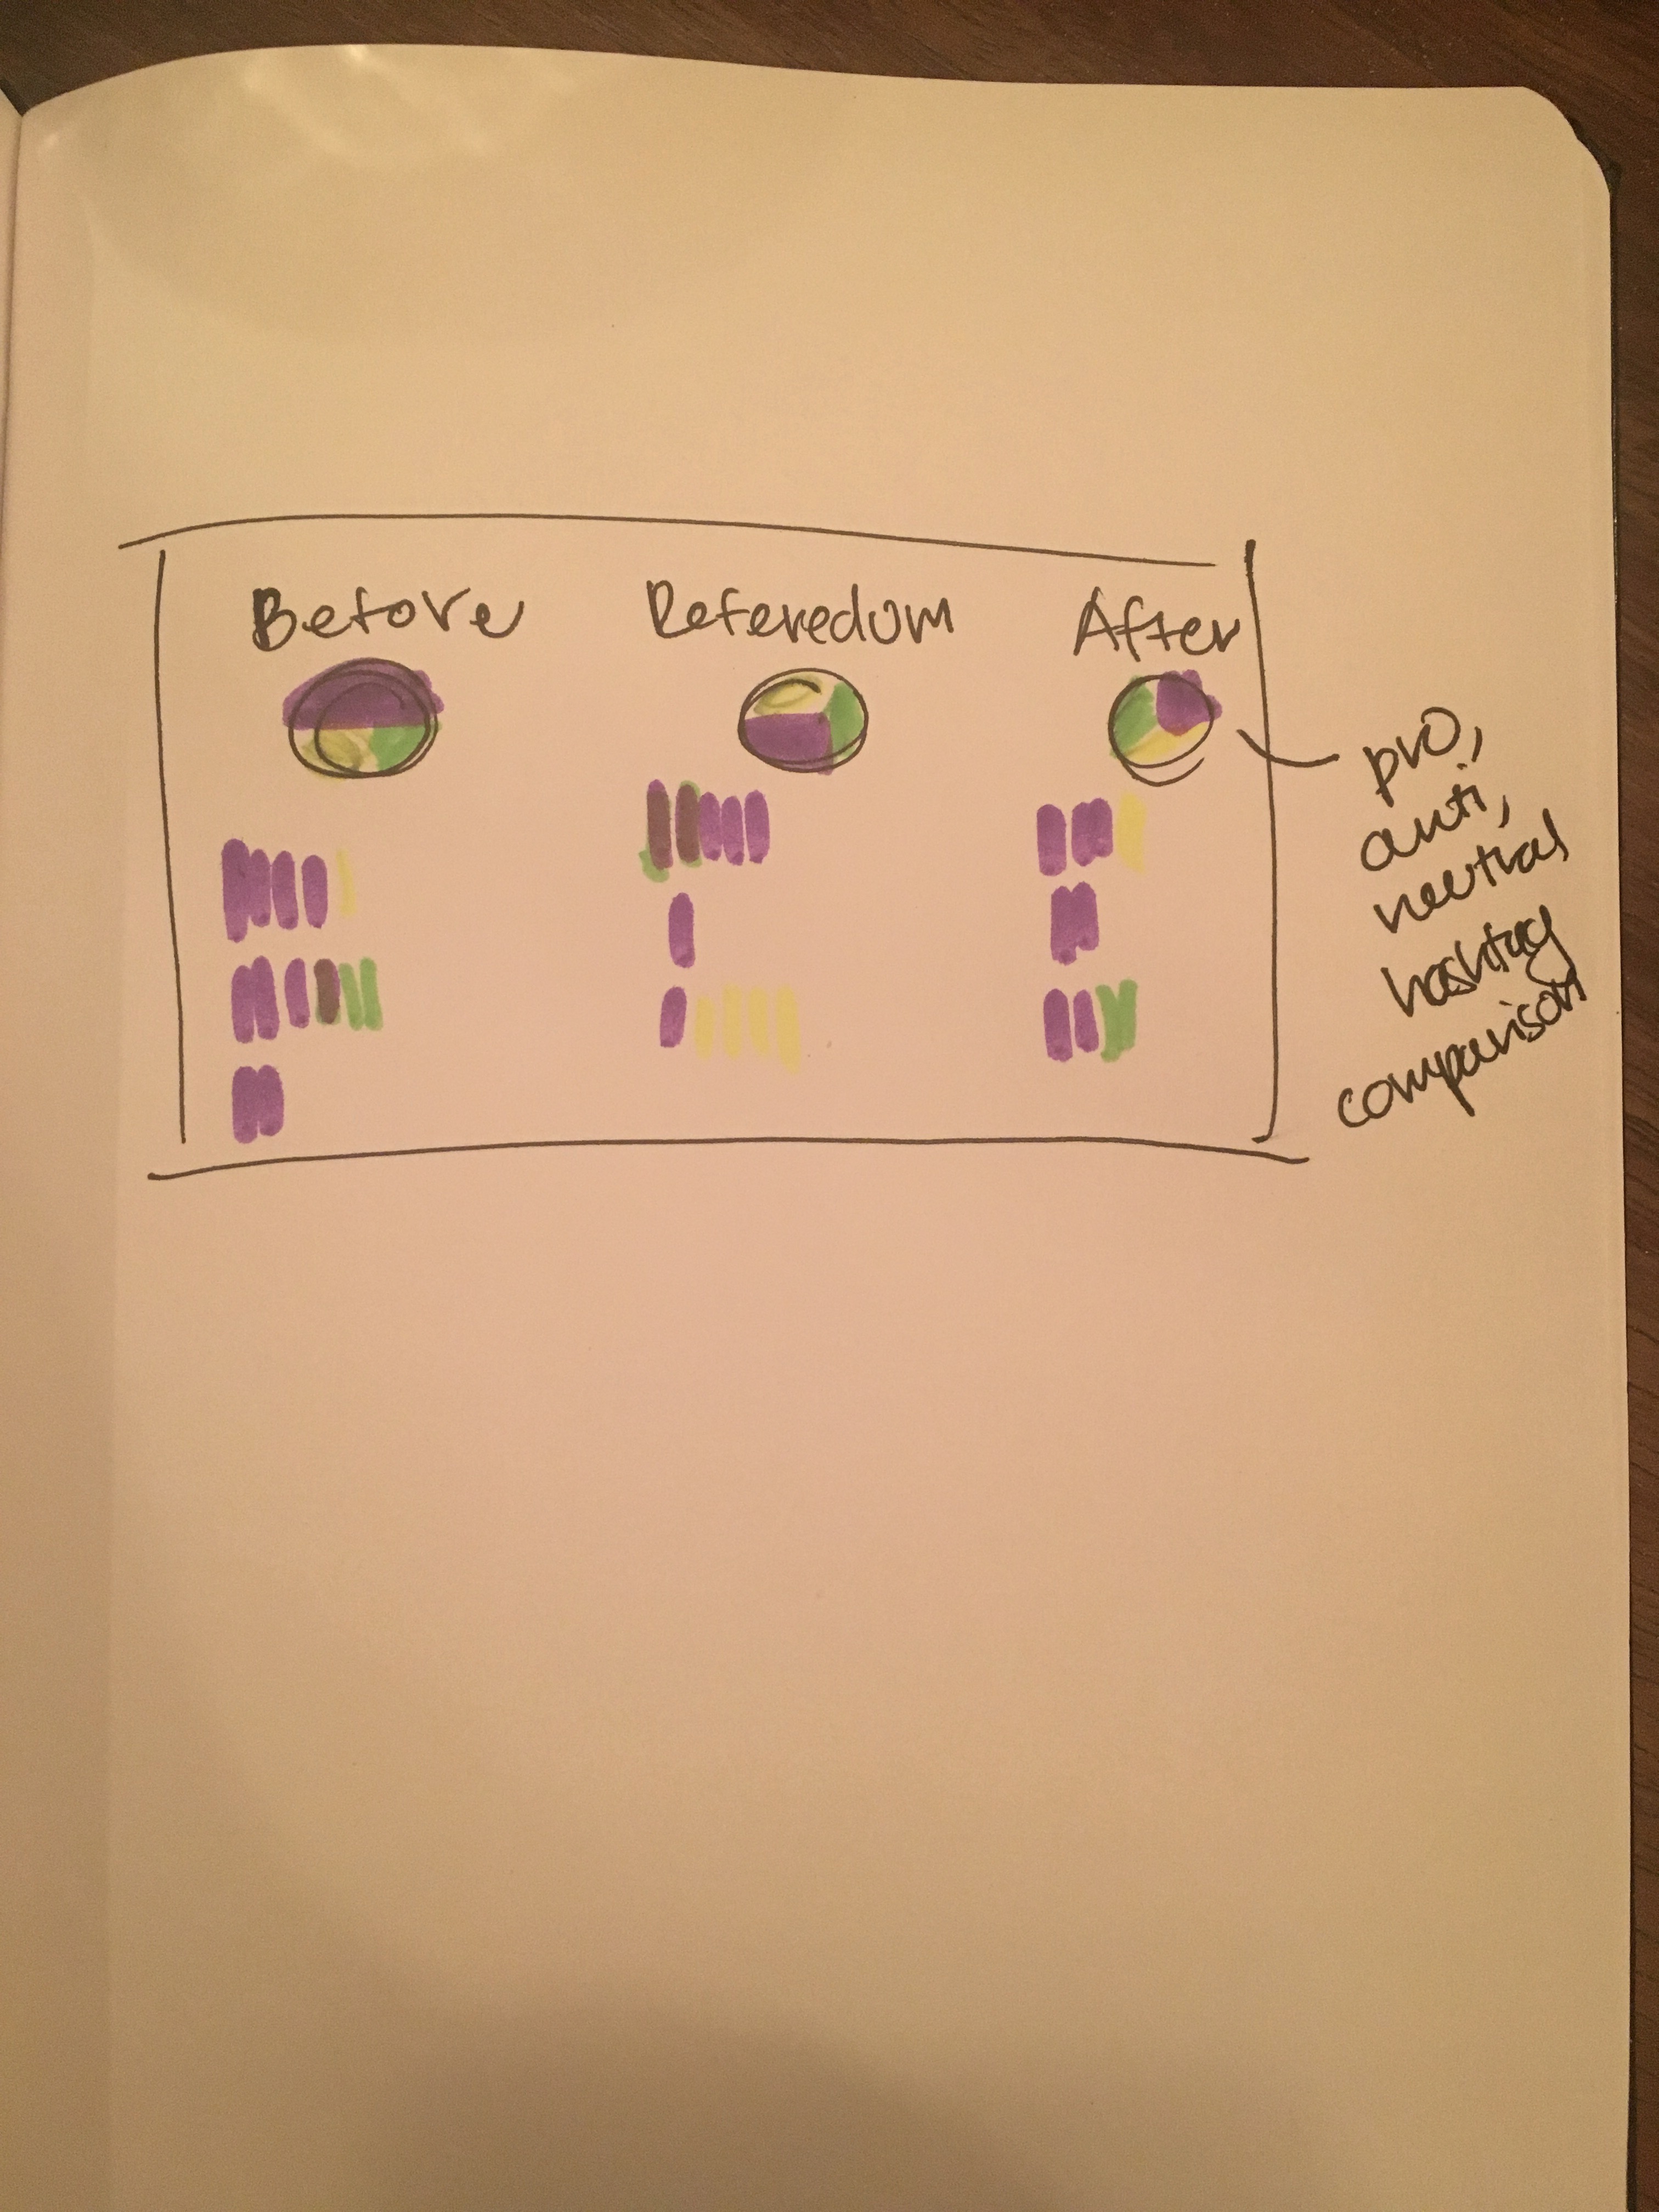 Before Referedum After
pro,
anti,
neutral
hashtag
comparison